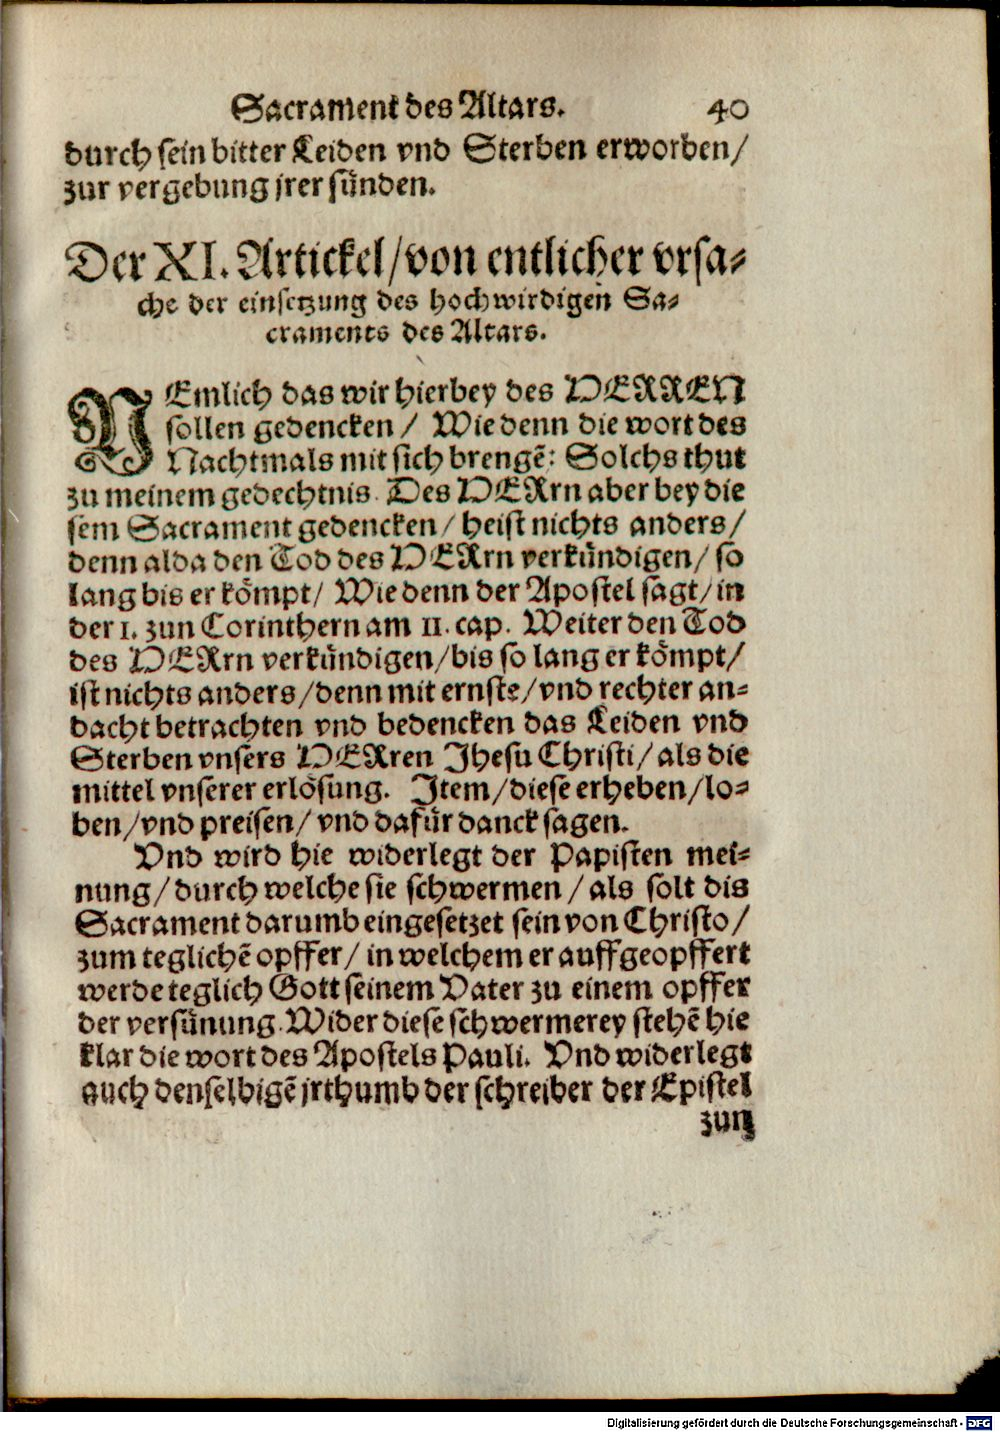 Sacrament des Altars. 40
durch sein bitter Leiden vnd Sterben erworben/
zur vergebung jrer sünden.
Der XI. Artickel/von entlicher vrsa⸗
che der einsetzung des hochwirdigen Sa⸗
craments des Altars.
NEmlich das wir hierbey des HERREN
sollen gedencken/ Wie denn die wort des
Nachtmals mit sich brengē: Solchs thut
zu meinem gedechtnis. Des HERrn aber bey die
sem Sacrament gedencken/ heist nichts anders/
denn alda den Tod des HERrn verkündigen/ so
lang bis er kömpt/ Wie denn der Apostel sagt/ in
der 1. zun Corinthern am 11. cap. Weiter den Tod
des HERrn verkündigen/bis so lang er kömpt/
ist nichts anders/denn mit ernste/vnd rechter an⸗
dacht betrachten vnd bedencken das Leiden vnd
Sterben vnsers HERren Jhesu Christi/ als die
mittel vnserer erlösung. Item/diese erheben/lo⸗
ben/vnd preisen/ vnd dafür danck sagen.
Vnd wird hie widerlegt der Papisten mei⸗
nung/durch welche sie schwermen/ als solt dis
Sacrament darumb eingesetzet sein von Christo/
zum teglichē opffer/ in welchem er auffgeopffert
werde teglich Gott seinem Vater zu einem opffer
der versünung. Wider diese schwermerey stehē hie
klar die wort des Apostels Pauli. Vnd widerlegt
auch denselbigē jrthumb der schreiber der Epistel
zun
Digitalisierung gefördert durch die Deutsche Forschungsgemeinschaft - DFG